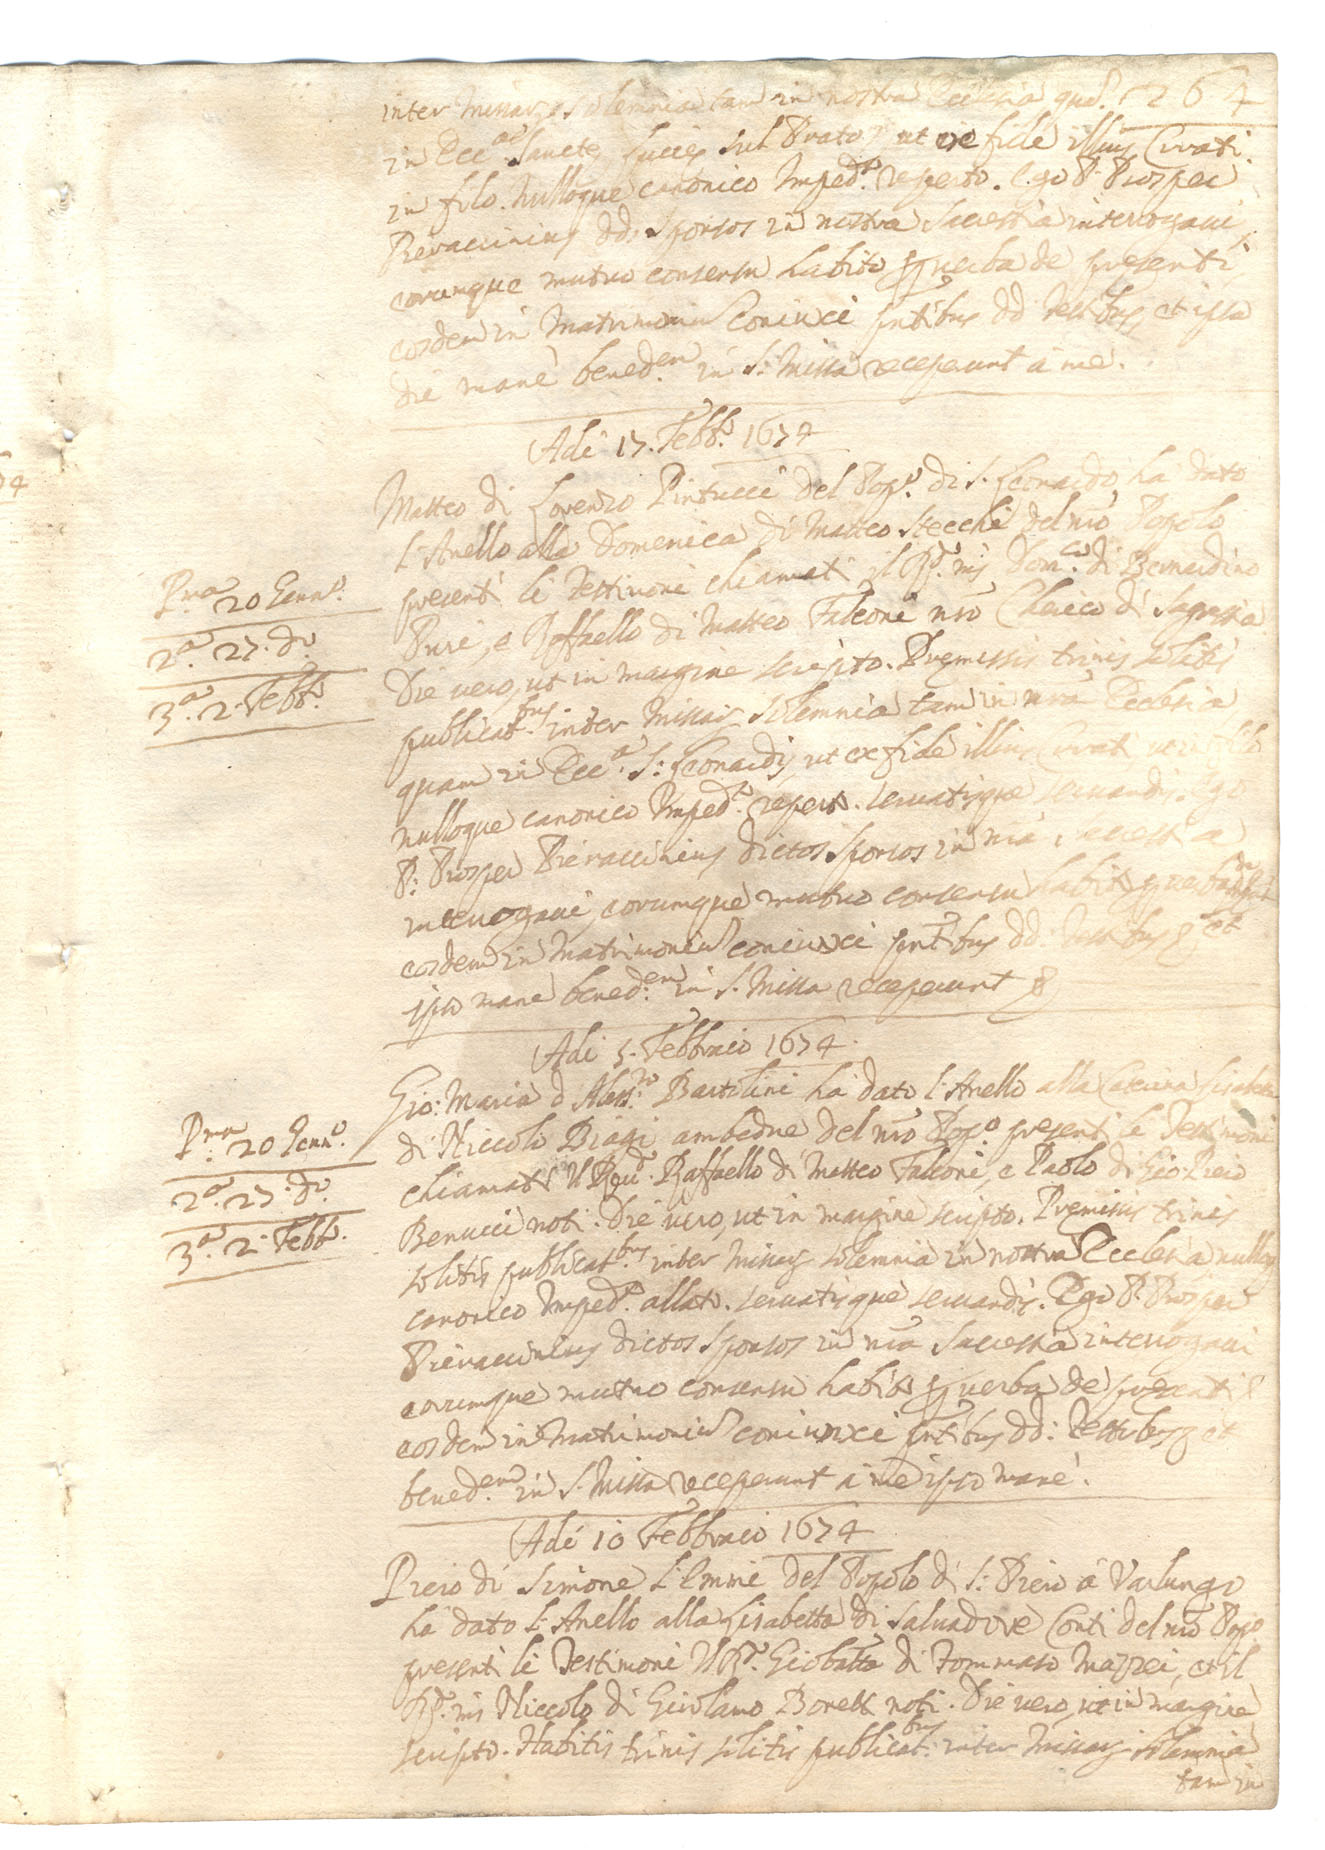 264
inter Missar. solemnia tam in nostra Ecclesia qua.
in Ecc.a Sancte Lucie sul Prato, ut ex fide illius Curati
in filo. Nulloque canonico Imped.o reperto. Ego P. Prosper
Pieraccinius dd. Sponsos in nostra Sacrestia interrogavi,
eorumque mutuo consensu habito p verba de presenti
eosdem in Matrimoniu coniuxi pntibus dd Testibus, et ipsa
die mane bened.em in S. Missa receperunt à me.
Adi 17. Febb.o 1674
Matteo di Lorenzo Pintucci del Pop.o di S. Leonardo ha dato
l'Anello alla Domenica di Matteo Stecchi del nro Popolo
presenti li Testimoni chiamati il Rd. ms Dom.co di Bernardino
Puri, e Raffaello di Matteo Falconi nro Cherico di Sagrestia
Pr.ma 20 Genn.o
2.a 27. do
3.a 2. Febb.o
Die vero, ut in margine scripto. Premissis trinis solitis
publicat.bus inter Missar. solemnia tam in nra Ecclesia
quam in Ecc.a S: Leonardi, ut ex fide illius Curati ut in filo
nulloque canonico Imped.o reperto. servatisque servandis. Ego
P: Prosper Pieraccinius dictos Sponsos in nra Sacrestia
interrogavi, eorumque mutuo consensu habito p verba
eosdem in Matrimoniu coniuxi pntibus dd Testibus et
ipso mane bened.em in S. Missa receperunt
Adi 5. Febbraio 1674.
Gio: Maria d Aless.ro Bartolini ha dato l'Anello alla Caterina Lisabetta
di Niccolò Biagi ambedue del nro Pop.o presenti le Testimoni
chiamati Raffaello di Matteo Falconi, e Paolo di Gio: Piero
Benucci noti. Die vero, ut in margine scripto. Premissis trinis
Pr.ma 20 Genn.o
2.a 27. do
3.a 2. Febb.o
solitis publicat.bus inter Missar. solemnia in nostra Ecclesia nulloq
canonico Imped.o allato. servatisque servandis. Ego P. Prosper
Pieraccinius dictos Sponsos in nra Sacrestia interrogavi
eorumque mutuo consensu habito p verba de presenti
eosdem in Matrimoniu coniuxi pntibus dd: Testibus et
bened.em in S. Missa receperunt à me ipso mane.
Adi 10 Febbraio 1674
Piero di Simone l'Emmi del Popolo di S: Piero à Varlungo
ha dato l'Anello alla Lisabetta di Salvadore Conti del nro Popo
presenti li Testimoni Il Rd. Giobatta di Tommaso Mazzei, et il
Rd. ms Niccolo di Girolamo noti. Die vero, ut in margine
scripto. Habitis trinis solitis publicat.bus inter Missar. solemnia
tam in